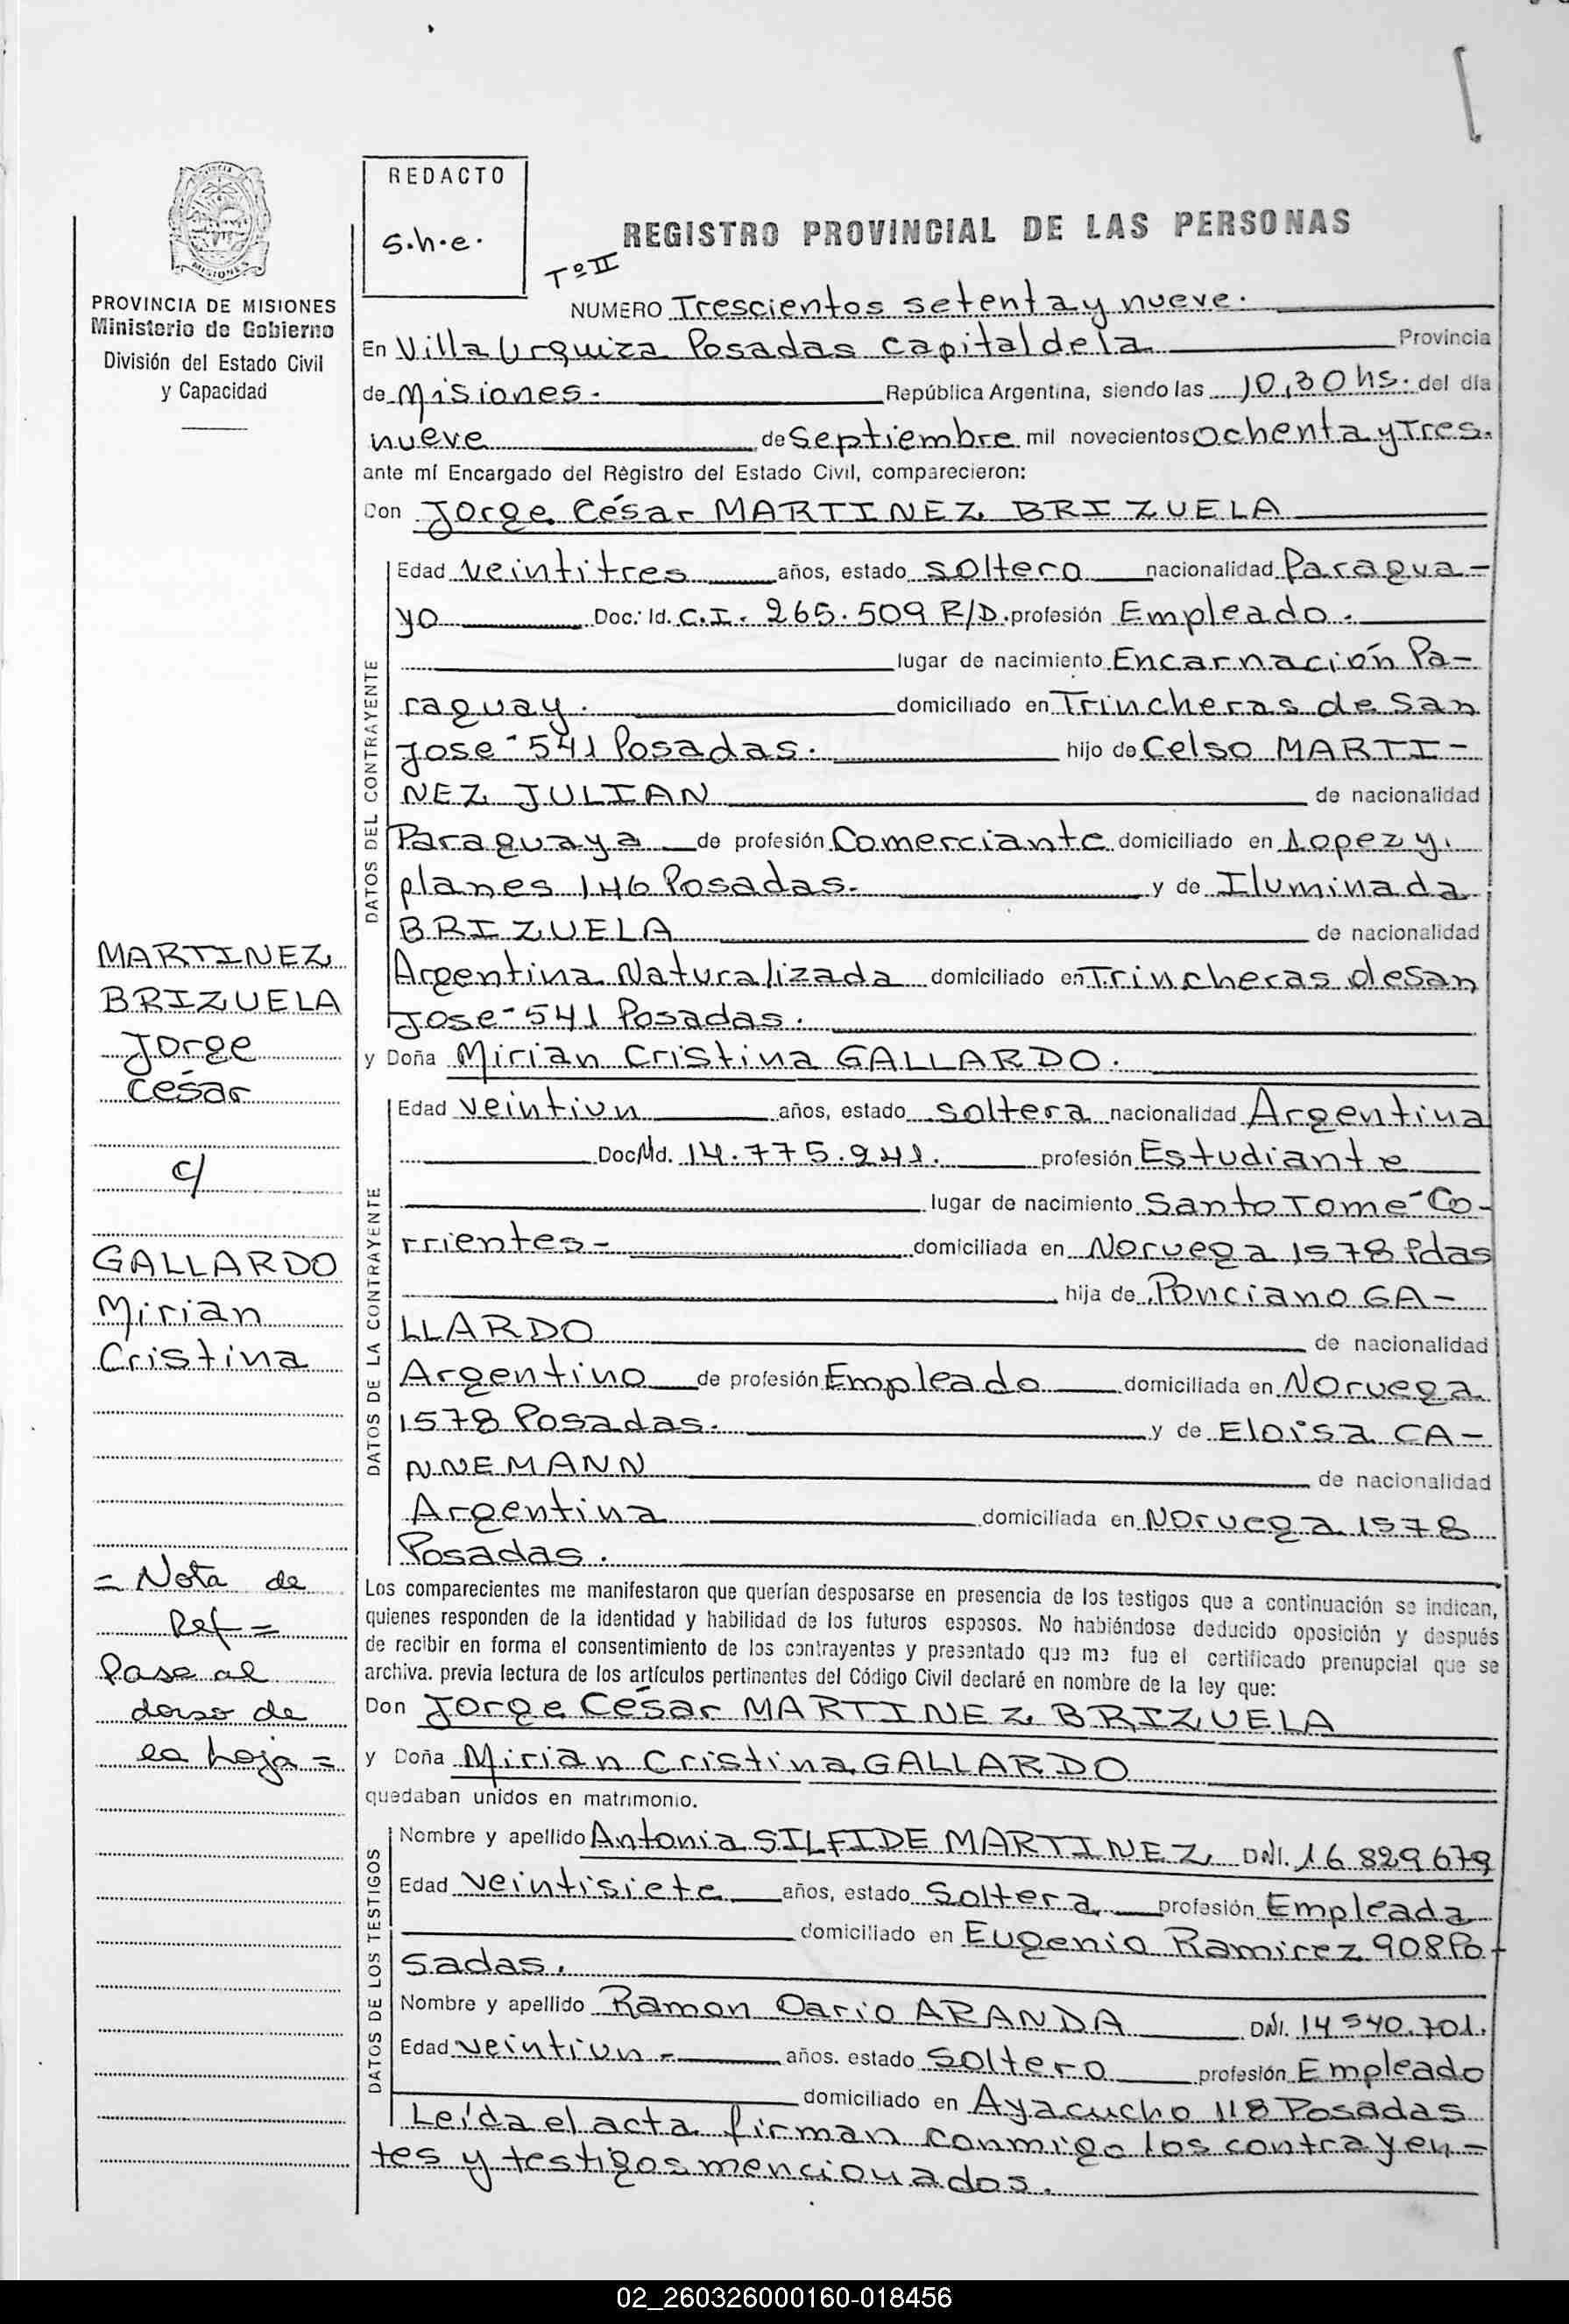 REDACTO
s.h.e.
REGISTRO PROVINCIAL DE LAS PERSONAS
Tº II
NUMERO Trescientos setenta y nueve.
PROVINCIA DE MISIONES
Ministerio de Gobierno
División del Estado Civil
y Capacidad
En Villa Urquiza Posadas capital de la Provincia
de Misiones. República Argentina, siendo las 10,30 hs. del día
nueve de Septiembre mil novecientos Ochenta y Tres.
ante mí Encargado del Règistro del Estado Civil, comparecieron:
Don Jorge César MARTINEZ BRIZUELA
DATOS DEL CONTRAYENTE
Edad veintitres años, estado soltero nacionalidad Paragua-
yo Doc: Id. C.I. 265.509 R/D. profesión Empleado.
lugar de nacimiento Encarnación Pa-
raguay. domiciliado en Trincheras de San
Jose-541 Posadas. hijo de Celso MARTI-
NEZ JULIAN de nacionalidad
Paraguaya de profesión Comerciante domiciliado en Lopez y
planes 146 Posadas. y de Iluminada
BRIZUELA de nacionalidad
Argentina Naturalizada domiciliado en Trincheras de San
Jose-541 Posadas.
y Doña Mirian Cristina GALLARDO.
DATOS DE LA CONTRAYENTE
Edad veintiun años, estado soltera nacionalidad Argentina
Doc Nd. 14.775.241. profesión Estudiante
lugar de nacimiento Santo Tome-Co-
rrientes- domiciliada en Noruega 1578 Pdas
hija de Ponciano GA-
LLARDO de nacionalidad
Argentino de profesión Empleado domiciliada en Noruega
1578 Posadas. y de Eloisa CA-
NNEMANN de nacionalidad
Argentina domiciliada en Noruega 1578
Posadas.
MARTINEZ
BRIZUELA
Jorge
César
c/
GALLARDO
Mirian
Cristina
= Nota de
Ref =
Pase al
dorso de
la hoja =
Los comparecientes me manifestaron que querían desposarse en presencia de los testigos que a continuación se indican,
quienes responden de la identidad y habilidad de los futuros esposos. No habiéndose deducido oposición y después
de recibir en forma el consentimiento de los contrayentes y presentado que me fue el certificado prenupcial que se
archiva. previa lectura de los artículos pertinentes del Código Civil declaré en nombre de la ley que:
Don Jorge César MARTINEZ BRIZUELA
y Doña Mirian Cristina GALLARDO
quedaban unidos en matrimonio.
DATOS DE LOS TESTIGOS
Nombre y apellido Antonia SILFIDE MARTINEZ DNI. 16 829 679
Edad veintisiete años, estado Soltera profesión Empleada
domiciliado en Eugenio Ramirez 908 Po-
sadas.
Nombre y apellido Ramon Dario ARANDA DNI. 14 540.701.
Edad veintiun- años. estado Soltero profesión Empleado
domiciliado en Ayacucho 118 Posadas
Leída el acta firman conmigo los contrayen-
tes y testigos mencionados.
02_260326000160-018456